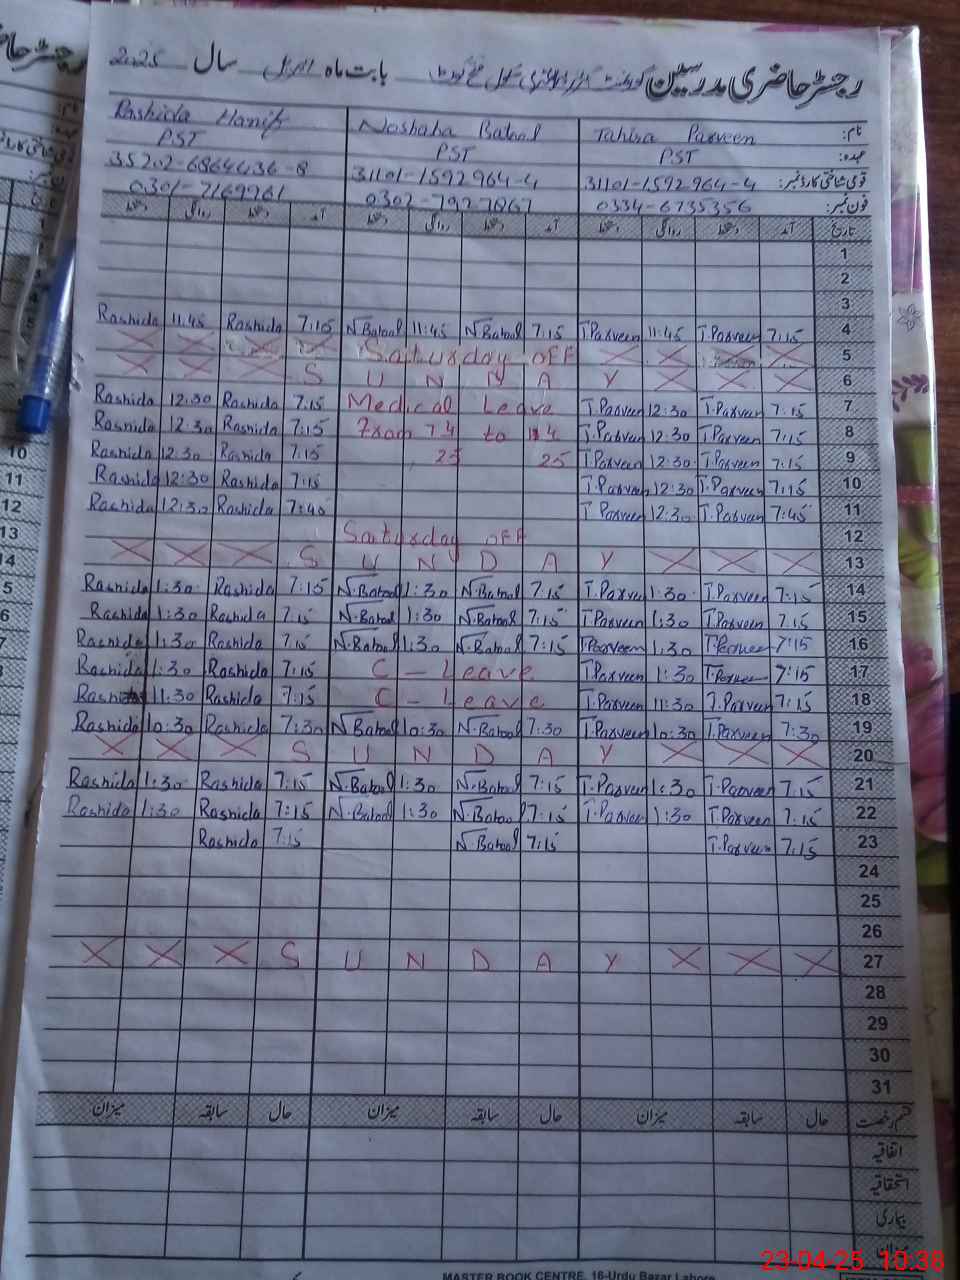 رجسٹر حاضری مدرسین گورنمنٹ گرلز پرائمری سکول بابت ماہ اپریل سال 2025
نام: Tahira Parveen Noshaba Batool Rashida Hanif
عہدہ: PST PST PST
قومی شناختی کارڈ نمبر: 31101-1592964-4 31101-1592964-4 35202-6864636-8
فون نمبر: 0334-6735356 0302-7927867 0301-7169961
تاریخ آمد دستخط روانگی دستخط آمد دستخط روانگی دستخط آمد دستخط روانگی دستخط
1
2
3
Rashida 11:45 Rashida 7:15 N.Batool 11:45 N.Batool 7:15 T.Parveen 11:45 T.Parveen 7:15 4
Saturday OFF 5
S U N N A Y 6
Rashida 12:30 Rashida 7:15 Medical Leave T.Parveen 12:30 T.Parveen 7:15 7
Rashida 12:30 Rashida 7:15 From 7 4 to 11 4 T.Parveen 12:30 T.Parveen 7:15 8
Rashida 12:30 Rashida 7:15 25 25 T.Parveen 12:30 T.Parveen 7:15 9
Rashida 12:30 Rashida 7:15 T.Parveen 12:30 T.Parveen 7:15 10
Rashida 12:30 Rashida 7:45 T.Parveen 12:30 T.Parveen 7:45 11
Saturday OFF 12
S U N D A Y 13
Rashida 1:30 Rashida 7:15 N.Batool 1:30 N.Batool 7:15 T.Parveen 1:30 T.Parveen 7:15 14
Rashida 1:30 Rashida 7:15 N.Batool 1:30 N.Batool 7:15 T.Parveen 1:30 T.Parveen 7:15 15
Rashida 1:30 Rashida 7:15 N.Batool 1:30 N.Batool 7:15 T.Parveen 1:30 T.Parveen 7:15 16
Rashida 1:30 Rashida 7:15 C - Leave T.Parveen 1:30 T.Parveen 7:15 17
Rashida 11:30 Rashida 7:15 C - Leave T.Parveen 11:30 T.Parveen 7:15 18
Rashida 10:30 Rashida 7:30 N.Batool 10:30 N.Batool 7:30 T.Parveen 10:30 T.Parveen 7:30 19
S U N D A Y 20
Rashida 1:30 Rashida 7:15 N.Batool 1:30 N.Batool 7:15 T.Parveen 1:30 T.Parveen 7:15 21
Rashida 1:30 Rashida 7:15 N.Batool 1:30 N.Batool 7:15 T.Parveen 1:30 T.Parveen 7:15 22
Rashida 7:15 N.Batool 7:15 T.Parveen 7:15 23
24
25
26
S U N D A Y 27
28
29
30
31
قسم رخصت حال سابقہ میزان حال سابقہ میزان حال سابقہ میزان
اتفاقیہ
استحقاقیہ
بیماری
میزان
MASTER BOOK CENTRE, 16-Urdu Bazar Lahore
23-04-25 10:38